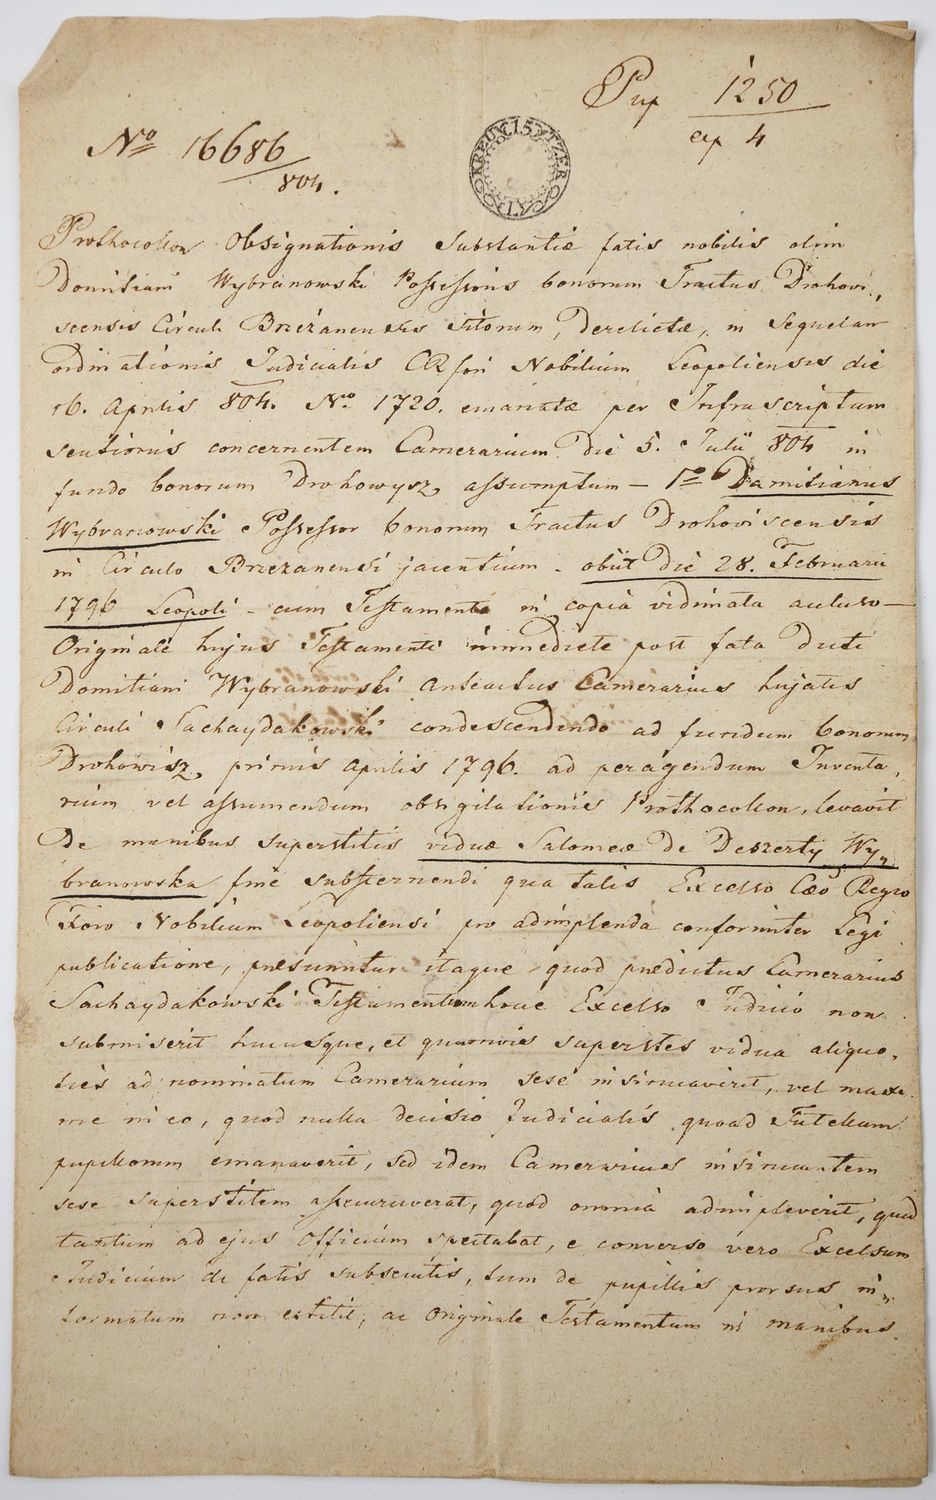 Pup 1250
exp 4
No 16686
804.
15 KREUTZER CA
Prothocollon Obsignationis Substantiæ fatis nobilis olim
Domitiani Wybranowski Possessoris bonorum Tractus Drohovi,
scensis Circuli Brzezanensis sitorum, derelictæ, in Sequelam
ordinationis Judicialis CR fori Nobilium Leopoliensis die
16. Aprilis 804. No 1720. emanatæ per Infrascriptum
concernentem Camerarium die 5. Julii 804 in
fundo bonorum Drohowysz assumptum – 1mo Domitianus
Wybranowski Possessor bonorum Tractus Drohoviscensis
in Circulo Brzezanensi jacentium – obiit die 28. Februarii
1796 Leopoli – cum Testamento in copia vidimata acluso –
Originale hujus Testamenti immediete post fata Dicti
Domitiani Wybranowski anteactus Camerarius hujatis
Circuli Sachaydakowski condescendendo ad fundum bonorum
Drohowisz primis Aprilis 1796. ad peragendum Inventa,
rium vel assumendum obsigilationis Prothocollon, levavit
De manibus superstitis viduæ Salomeæ De Deszerty Wy,
branowska fine substernendi qua talis Excelso Cæo Regio
Foro Nobilium Leopoliensi pro adimplenda conformiter Legi
publicatione, itaque quod prædictus Camerarius
Sachaydakowski Testamentum hocce Excelso Judicio non
submiserit hucusque, et quamvis superstes vidua aliquo,
ties ad nominatum Camerarium sese insinuaverit, vel maxi
me in eo, quod nulla decisio Judicialis quoad Tutelam
pupillorum emanaverit, sed idem Camerarius insinuantem
sese superstitem assecuraverat, quod omnia adimpleverit, quod
tantum ad ejus Officium spectabat, e converso vero Excelsum
Judicium de fatis subsecutis, tum de pupillis prorsus in,
formatum non extitit; ac Originale Testamentum in manibus